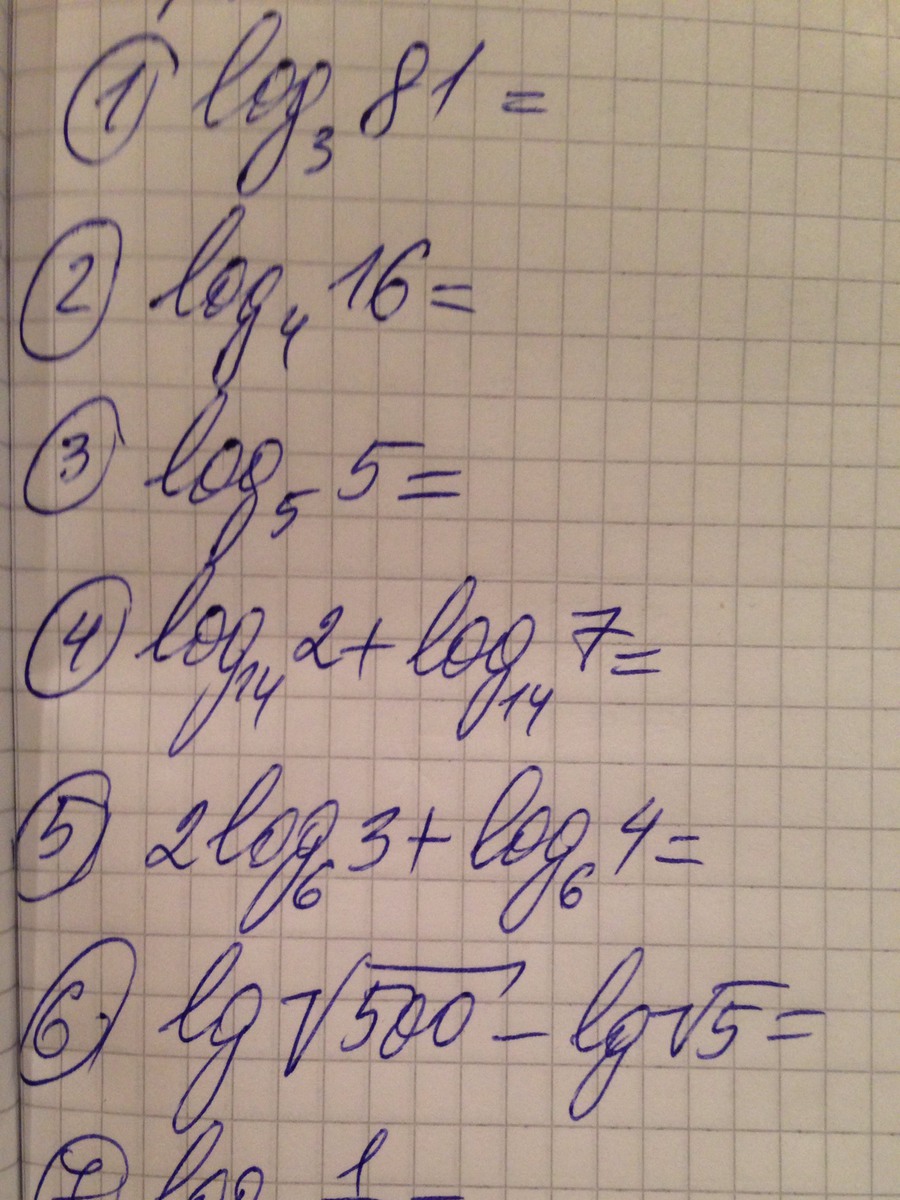 ① log₃ 81 =
② log₄ 16 =
③ log₅ 5 =
④ log₁₄ 2 + log₁₄ 7 =
⑤ 2 log₆ 3 + log₆ 4 =
⑥ lg √500 - lg √5 =
⑦ log